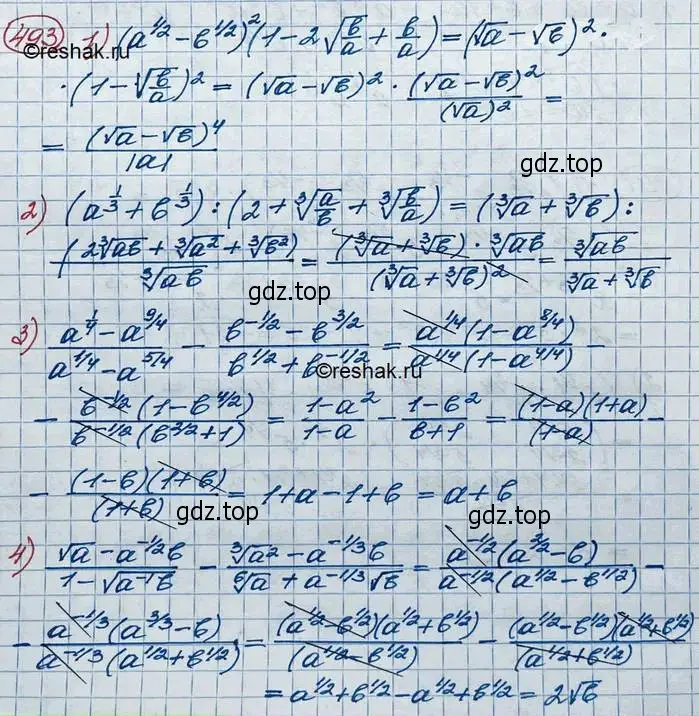 493 1) (a^{1/2} - b^{1/2})^2 (1 - 2√(b/a) + b/a) = (√a - √b)^2 ·
©reshak.ru
· (1 - √(b/a))^2 = (√a - √b)^2 · (√a - √b)^2/(√a)^2 =
= (√a - √b)^4/|a|
gdz.top
2) (a^{1/3} + b^{1/3}) : (2 + ∛(a/b) + ∛(b/a)) = (∛a + ∛b) :
(2∛ab + ∛a^2 + ∛b^2)/∛ab = (∛a + ∛b) · ∛ab/(∛a + ∛b)^2 = ∛ab/(∛a + ∛b)
gdz.top
3) (a^{1/4} - a^{9/4})/(a^{1/4} - a^{5/4}) - (b^{-1/2} - b^{3/2})/(b^{1/2} + b^{-1/2}) = a^{1/4}(1 - a^{8/4})/a^{1/4}(1 - a^{4/4}) -
©reshak.ru
- b^{-1/2}(1 - b^{4/2})/b^{-1/2}(b^{2/2} + 1) = (1 - a^2)/(1 - a) - (1 - b^2)/(b + 1) = (1 - a)(1 + a)/(1 - a) -
- (1 - b)(1 + b)/(1 + b) = 1 + a - 1 + b = a + b
gdz.top
gdz.top
4) (√a - a^{-1/2}b)/(1 - √(a^{-1}b)) - (∛a^2 - a^{-1/3}b)/(⁶√a + a^{-1/3}√b) = a^{-1/2}(a^{2/2} - b)/a^{-1/2}(a^{1/2} - b^{1/2}) -
- a^{-1/3}(a^{3/3} - b)/a^{-1/3}(a^{1/2} + b^{1/2}) = (a^{1/2} - b^{1/2})(a^{1/2} + b^{1/2})/(a^{1/2} - b^{1/2}) - (a^{1/2} - b^{1/2})(a^{1/2} + b^{1/2})/(a^{1/2} + b^{1/2})
gdz.top
= a^{1/2} + b^{1/2} - a^{1/2} + b^{1/2} = 2√b